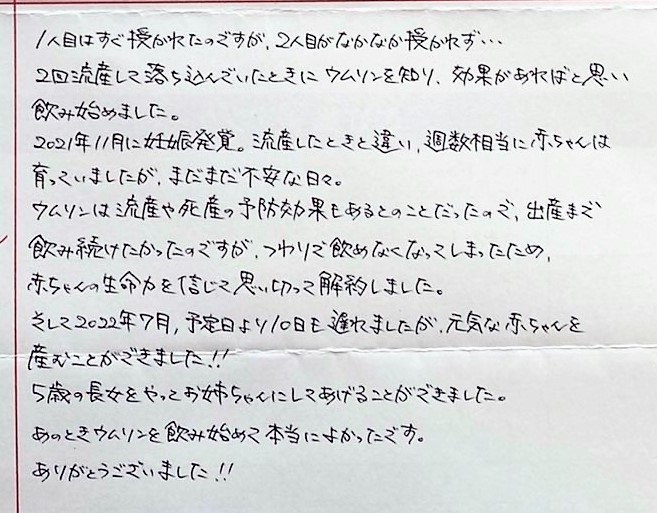 1人目はすぐ授かれたのですが、2人目がなかなか授かれず…
2回流産して落ち込んでいたときにウムリンを知り、効果があればと思い
飲み始めました。
2021年11月に妊娠発覚。流産したときと違い、週数相当に赤ちゃんは
育っていましたが、まだまだ不安な日々。
ウムリンは流産や死産の予防効果もあるとのことだったので、出産まで
飲み続けたかったのですが、つわりで飲めなくなってしまったため、
赤ちゃんの生命力を信じて思い切って解約しました。
そして2022年7月、予定日より10日も遅れましたが、元気な赤ちゃんを
産むことができました!!
5歳の長女をやっとお姉ちゃんにしてあげることができました。
あのときウムリンを飲み始めて本当によかったです。
ありがとうございました!!